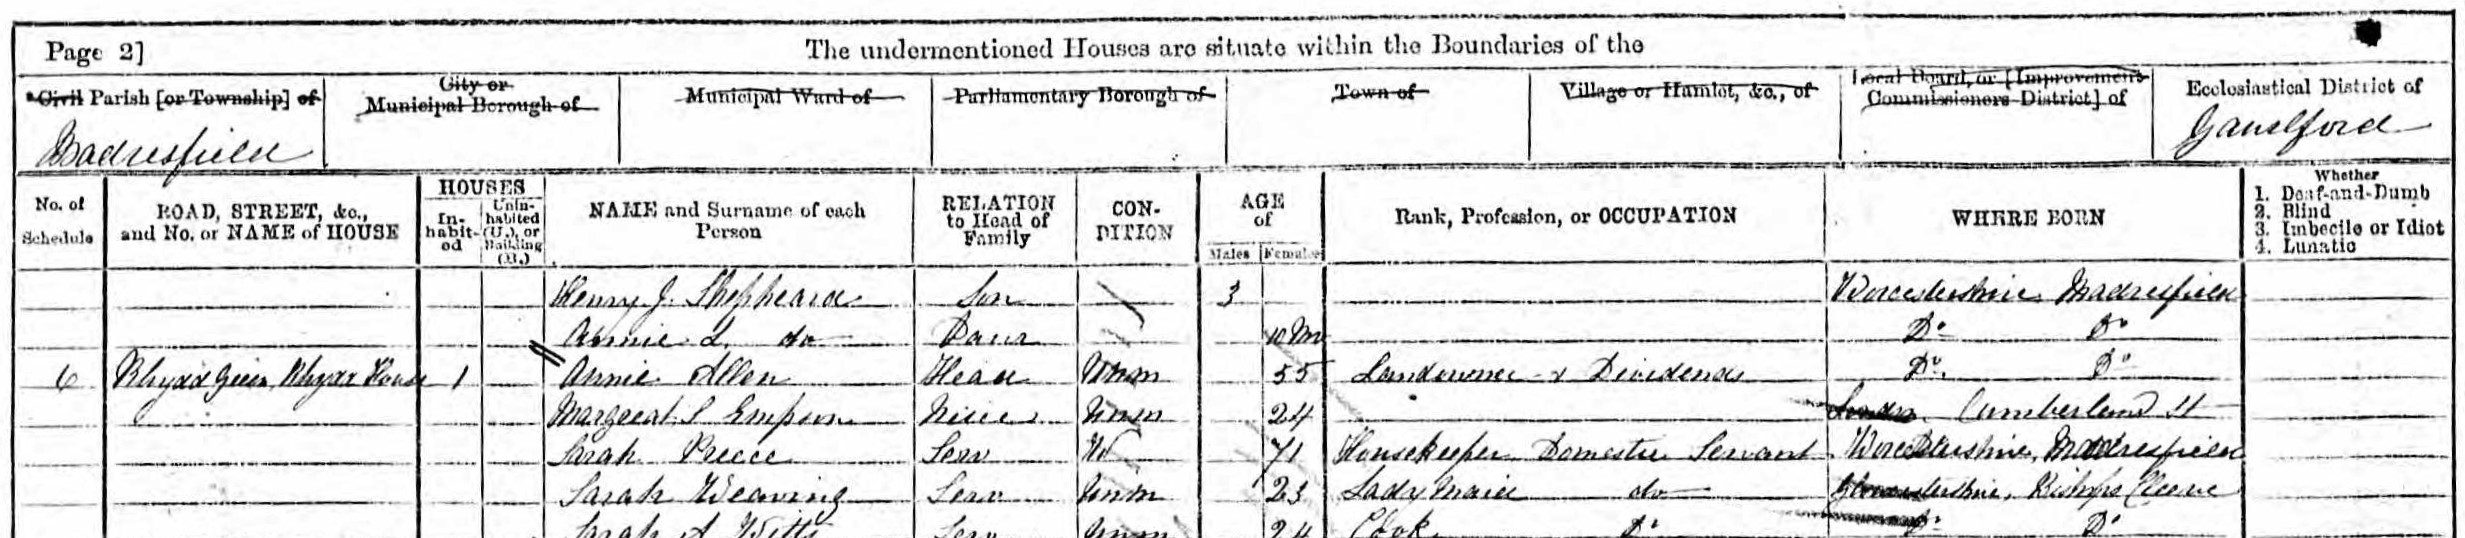 Page 2]
The undermentioned Houses are situate within the Boundaries of the
Civil Parish [or Township] of
City or Municipal Borough of
Municipal Ward of
Parliamentary Borough of
Town of
Village or Hamlet, &c., of
Local Board, or [Improvement Commissioners District] of
Ecclesiastical District of
Madresfield
No. of Schedule
ROAD, STREET, &c., and No. or NAME of HOUSE
HOUSES
In-habit-ed
Unin-habited (U.), or Building (B.)
NAME and Surname of each Person
RELATION to Head of Family
CON-DITION
AGE of
Males
Females
Rank, Profession, or OCCUPATION
WHERE BORN
Whether
1. Deaf-and-Dumb
2. Blind
3. Imbecile or Idiot
4. Lunatic
Henry J. Shepheard Son 3 Worcestershire, Madresfield
Annie L. do Daur 10 Mo Do Do
6 Rhydd Green, Rhydd House 1 Annie Allen Head Unm 55 Landowner & Dividends Do Do
Margaret S Empson Niece Unm 24 London Cumberland St
Sarah Preece Serv W 71 Housekeeper Domestic Servant Worcestershire, Madresfield
Sarah Weaving Serv Unm 23 Lady Maid do Gloucestershire, Bishops Cleeve
Sarah A Witts Serv Unm 24 Cook Do Do Do